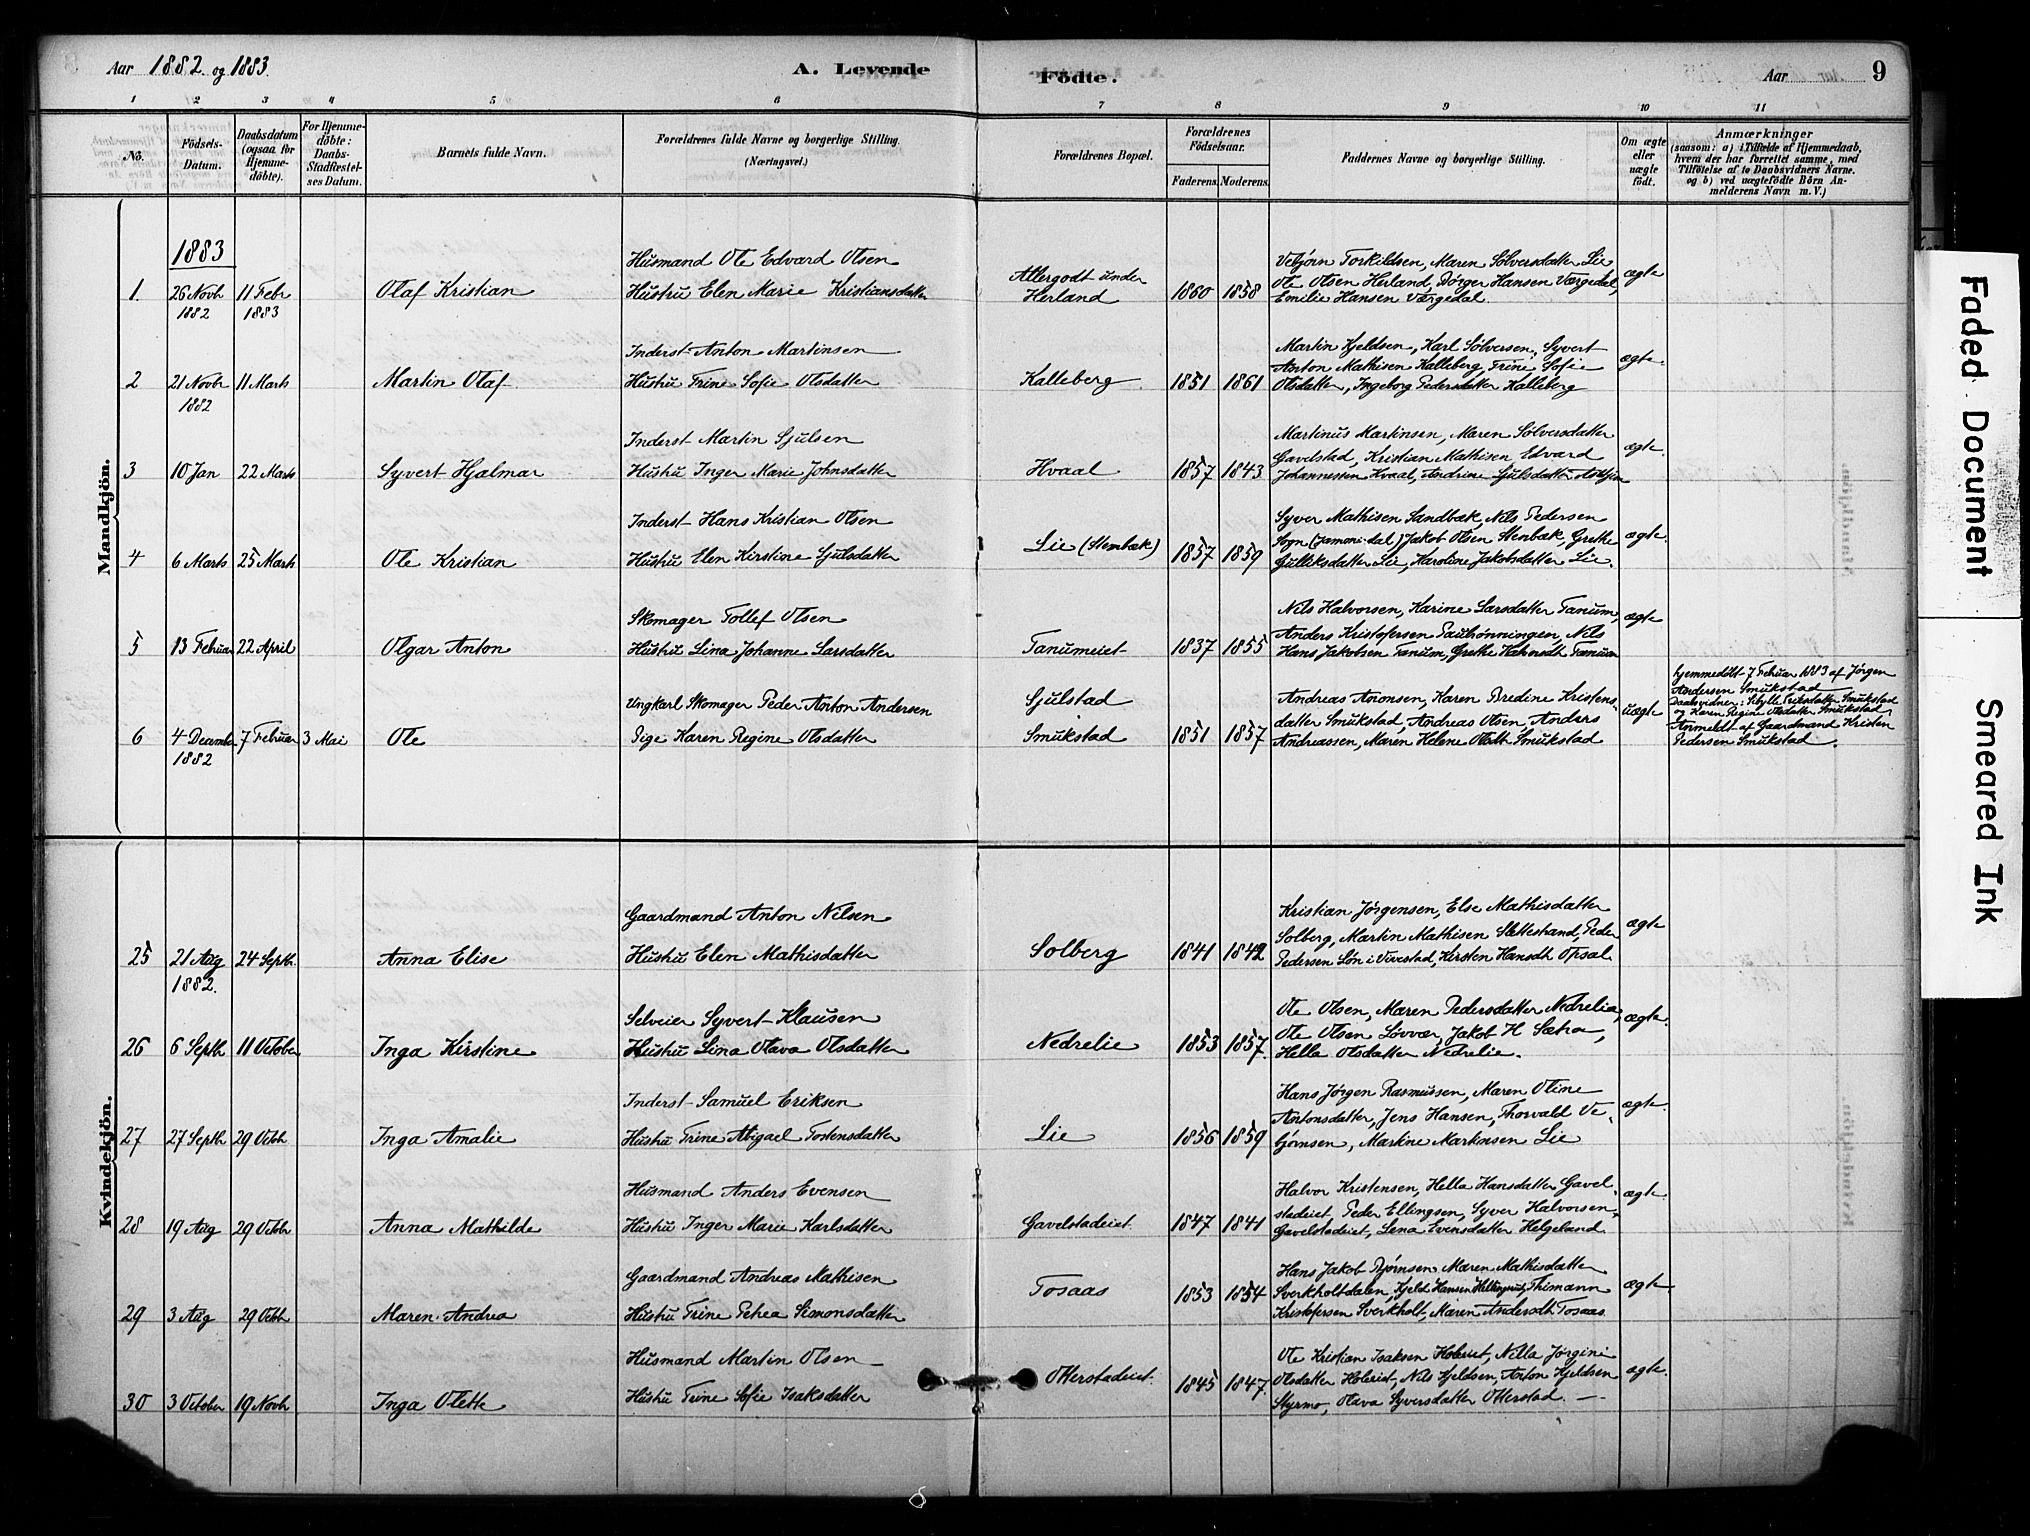 Aar 1882 og 1883.
A. Levende Födte.
Aar
9
1 2 3 4 5 6 7 8 9 10 11
No.
Födsels-Datum.
Daabsdatum (ogsaa for Hjemme-döbte).
For Hjemme-döbte: Daabs-Stadfæstel-ses Datum.
Barnets fulde Navn.
Forældrenes fulde Navne og borgerlige Stilling. (Næringsvei.)
Forældrenes Bopæl.
Forældrenes Födselsaar.
Faderens. Moderens.
Faddernes Navne og borgerlige Stilling.
Om ægte eller uægte födt.
Anmærkninger
(saasom: a) i Tilfælde af Hjemmedaab, hvem der har forrettet samme, med Tilföielse af to Daabsvidners Navne. og b) ved uægtefödte Börn An-melderens Navn m. V.)
Mandkjön.
1883
Husmand Ole Edvard Olsen
Vebjørn Torkildsen, Maren Sølversdatter Lie
1 26 Novb 11 Febr Olaf Kristian Hustru Elen Marie Kristiansdatter Allergodt under Herland 1860 1858 Ole Olsen Herland, Jørger Hansen Værgedal, ægte
1882 1883 Emilie Hansen Værgedal
Inderst Anton Martinsen
Martin Kjeldsen, Karl Sølversen, Syvert
2 21 Novbr 11 Marts Martin Olaf Hustru Trine Sofie Olsdatter Kalleberg 1851 1861 Anton Mathisen Kalleberg, Trine Sofie ægte
1882 Olsdatter, Ingeborg Pedersdatter Kalleberg
Inderst Martin Sjulsen
Martinus Martinsen, Maren Sølversdatter
3 10 Jan 22 Marts Syvert Hjalmar Hustru Inger Marie Johnsdatter Hvaal 1857 1843 Gavelstad, Kristian Mathisen Edvard ægte
Johannessen Hvaal, Andrine Sjulsdatter
Inderst Hans Kristian Olsen
Syver Mathisen Sandbæk, Nils Pedersen
4 6 Marts 25 Marts Ole Kristian Hustru Elen Kirstine Sjulsdatter Lie (Stenbæk) 1857 1859 Sogn Jakob Olsen Stenbæk, Grethe ægte
Gulliksdatter Lie, Karoline Jakobsdatter Lie.
Skomager Tollef Olsen
Nils Halvorsen, Karine Larsdatter Tanum,
5 13 Februar 22 April Olgar Anton Hustru Lina Johanne Larsdatter Tanumeiet 1837 1855 Anders Kristofersen Nils ægte
Hans Jakobsen Tanum, Grethe Tanum
Ungkarl Skomager Peder Anton Andersen Sjulstad
Andreas Aronsen, Karen Bredine Kristens-
6 4 Decembr 7 Februar 3 Mai Ole Pige Karen Regine Olsdatter Smukstad 1851 1857 datter Smukstad, Andreas Olsen, Anders uægte
1882 Andreassen, Maren Helene Olsdtr Smukstad
hjemmedöbt 7 Februar 1883 af Jørgen
Andersen Smukstad
Daabsvidner: Sibylle Eriksdatter Smukstad
og Karen Regine Olsdatter Smukstad
Anmeldt af Gaardmand Kristen
Pedersen Smukstad.
Kvindekjön.
Gaardmand Anton Nilsen
Kristian Jørgensen, Else Mathisdatter
25 21 Aug 24 Septb. Anna Elise Hustru Elen Mathisdatter Solberg 1841 1842 Solberg, Martin Mathisen Slettestrand, Peder ægte
1882. Pedersen Søn i Vivestad, Kirsten Hansdtr Opsal
Selveier Syvert Klausen
Ole Olsen, Maren Pedersdatter Nedrelie,
26 6 Septb 11 October Inga Kirstine Hustru Lina Olava Olsdatter Nedrelie 1853 1857. Ole Olsen Løvvær, Jakob H Sætra, ægte.
Hella Olsdatter Nedrelie.
Inderst Samuel Eriksen
Hans Jørgen Rasmussen, Maren Oline
27 27 Septb 29 Octb Inga Amalie Hustru Trine Abigael Torstensdatter Lie 1856 1859 Antonsdatter, Jens Hansen, Thorvald Ve- ægte.
bjørnsen, Martine Martinsen Lie
Husmand Anders Evensen
Halvor Kristensen, Hella Hansdatter Gavel-
28 19 Aug 29 Octbr Anna Mathilde Hustru Inger Marie Karlsdatter Gavelstadeiet. 1847 1841 stadeiet, Peder Ellingsen, Syver Halvorsen ægte.
Gavelstadeiet, Lena Evensdatter Helgeland.
Gaardmand Andreas Mathisen
Hans Jakob Bjørnsen, Maren Mathisdatter
29 3 Aug 29 Octb Maren Andrea Hustru Trine Petrea Simonsdatter Tosaas 1853 1854 Sverkholtdalen, Kjeld Hansen Thimann ægte
Kristofersen Sverkholt, Maren Andersdtr Tosaas
Husmand Martin Olsen
Ole Kristian Isaksen Holeriet, Nilla Jørgini
30 3 October 19 Novb Inga Olette Hustru Trine Sofie Isaksdatter Otterstadeiet. 1845 1847. Olsdatter Holeriet, Nils Kjeldsen, Anton Kjeldsen ægte.
Styrmo, Olava Syversdatter Otterstad. —
Faded Document
Smeared Ink